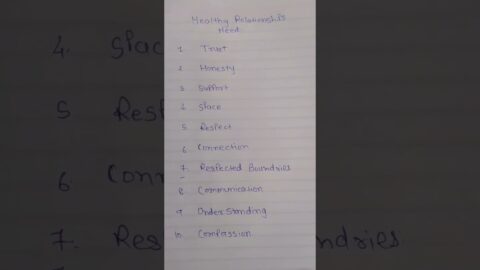 Healthy Relationships
Need
1 Trust
2 Honesty
3 Support
4 Space
5 Respect
6 Connection
7. Respected Boundries
8 Communication
9 Understanding
10 Compassion